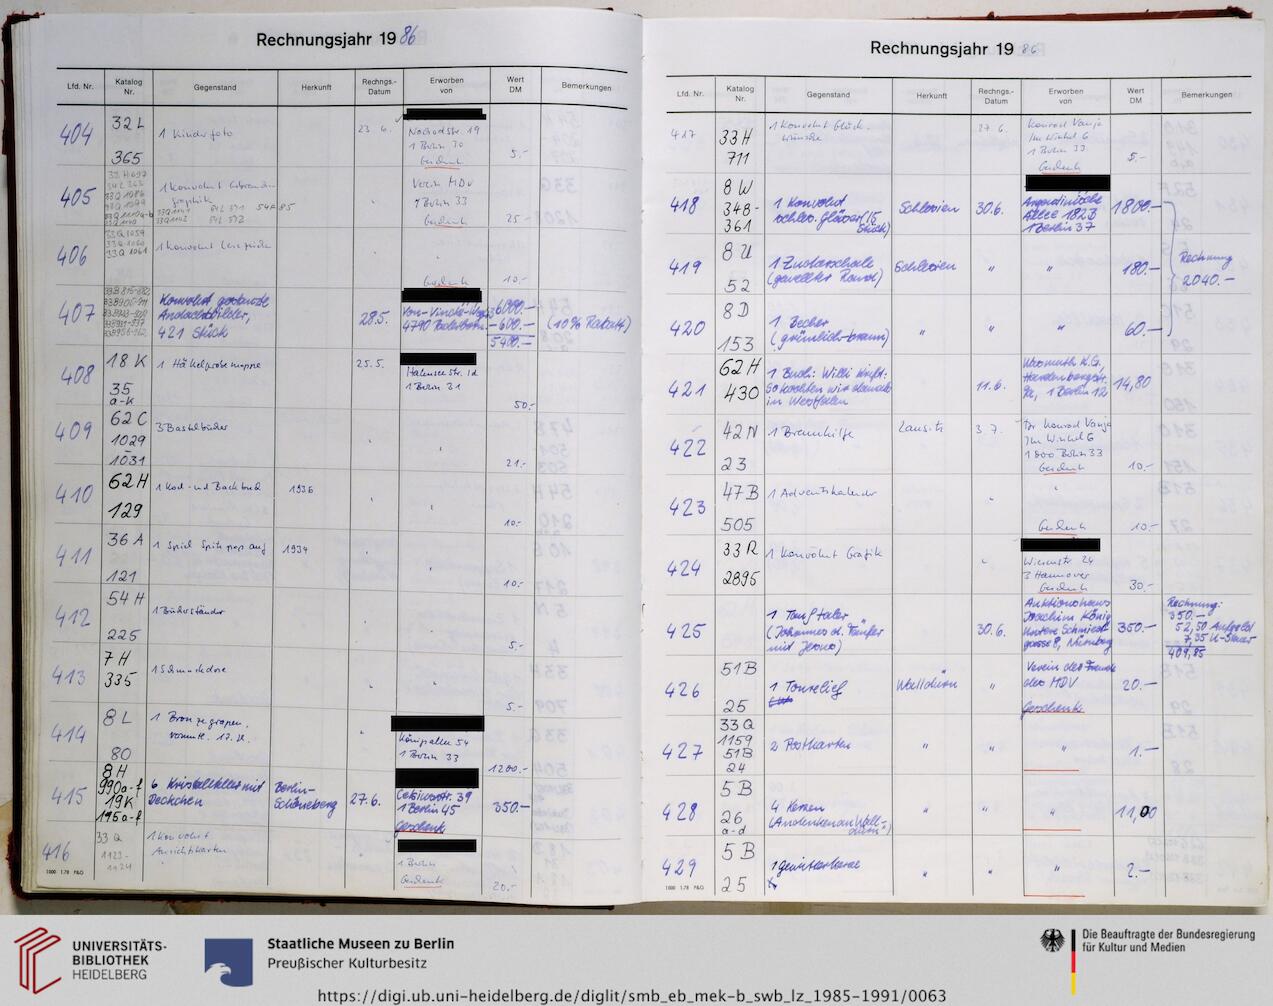 Rechnungsjahr 1986
Lfd. Nr.
Katalog Nr.
Gegenstand
Herkunft
Rechngs.-Datum
Erworben von
Wert DM
Bemerkungen
404
32 L
365
1 Kinderfoto
23. 6.
1 Berlin 30
Geschenk
5.-
405
1 Konvolut
Verein MDV
1 Berlin 33
Geschenk
25.-
406
33Q 1059
33Q 1060
33Q 1061
1 Konvolut
Geschenk
10.-
407
Konvolut gestanzte
Andachtsbilder,
421 Stück
28.5.
Von-Vincke-Weg
4790 Paderborn
6000.-
-600.-
5400.-
(10% Rabatt)
408
18 K
35
a-k
1 Häkelprobenmappe
25.5.
Halensee Str. 1d
1 Berlin 31
50.-
409
62 C
1029
1031
3 Bastelbücher
21.-
410
62 H
129
1 Koch- und Backbuch
1936
10.-
411
36 A
121
1 Spiel Spitz pass auf
1934
10.-
412
54 H
225
1 Bücherständer
5.-
413
7 H
335
1 Schmuckdose
5.-
414
8 L
80
1 Bronzegrapen,
Königsallee 54
1 Berlin 33
1200.-
415
8 H
990a-f
19 K
195a-f
6 Kristallteller mit
Deckchen
Berlin-
Schöneberg
27.6.
1 Berlin 45
Geschenk
350.-
416
33 Q
1123-
1124
1 Konvolut
Ansichtskarten
1 Berlin
Geschenk
20.-
1000 1.78 P&O
Rechnungsjahr 1986
Lfd. Nr.
Katalog Nr.
Gegenstand
Herkunft
Rechngs.-Datum
Erworben von
Wert DM
Bemerkungen
417
33 H
711
1 Konvolut Glück-
wünsche
27.6.
Konrad Vanja
Im Winkel 6
1 Berlin 33
Geschenk
5.-
418
8 W
348-
361
1 Konvolut
schles. Gläser (15
Stück)
Schlesien
30.6.
Argentinische
Allee 182B
1 Berlin 37
1800.-
419
8 U
52
1 Zuckerschale
(gewellter Rand)
Schlesien
"
"
180.-
Rechnung
2040.-
420
8 D
153
1 Becher
(grünlich-braun)
"
"
"
60.-
421
62 H
430
1 Buch: Willi Kraft:
So kochten wir damals
in Westfalen
11.6.
Wasmuth K.G.,
Hardenbergstr.
9a, 1 Berlin 12
14,80
422
42 N
23
1 Brennhilfe
Lausitz
3.7.
Dr Konrad Vanja
Im Winkel 6
1000 Berlin 33
Geschenk
10.-
423
47 B
505
1 Adventskalender
"
"
Geschenk
10.-
424
33 R
2895
1 Konvolut Grafik
"
3 Hannover
Geschenk
30.-
425
1 Tauftaler
(Johannes d. Täufer
mit Jesus)
30.6.
Auktionshaus
Joachim König
Untere Schmied-
gasse 8, Nürnberg
350.-
Rechnung:
350.-
52,50 Aufgeld
7,35 U-Steuer
409,85
426
51 B
25
1 Tonrelief
Walldürn
"
Verein der Freunde
des MDV
Geschenk
20.-
427
33 Q
1159
51 B
24
2 Postkarten
"
"
"
1.-
428
5 B
26
a-d
4 Kerzen
(Andenken an Wall-
dürn)
"
"
"
11,00
429
5 B
25
1 Gewitterkerze
"
"
"
2.-
1000 1.78 P&O
UNIVERSITÄTS-
BIBLIOTHEK
HEIDELBERG
Staatliche Museen zu Berlin
Preußischer Kulturbesitz
Die Beauftragte der Bundesregierung
für Kultur und Medien
https://digi.ub.uni-heidelberg.de/diglit/smb_eb_mek-b_swb_lz_1985-1991/0063